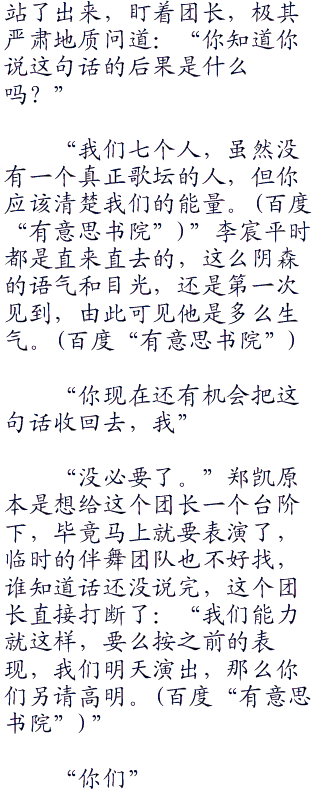 站了出来，盯着团长，极其
严肃地质问道：“你知道你
说这句话的后果是什么
吗？”
“我们七个人，虽然没
有一个真正歌坛的人，但你
应该清楚我们的能量。(百度
“有意思书院”)”李宸平时
都是直来直去的，这么阴森
的语气和目光，还是第一次
见到，由此可见他是多么生
气。(百度“有意思书院”)
“你现在还有机会把这
句话收回去，我”
“没必要了。”郑凯原
本是想给这个团长一个台阶
下，毕竟马上就要表演了，
临时的伴舞团队也不好找，
谁知道话还没说完，这个团
长直接打断了：“我们能力
就这样，要么按之前的表
现，我们明天演出，那么你
们另请高明。(百度“有意思
书院”)”
“你们”